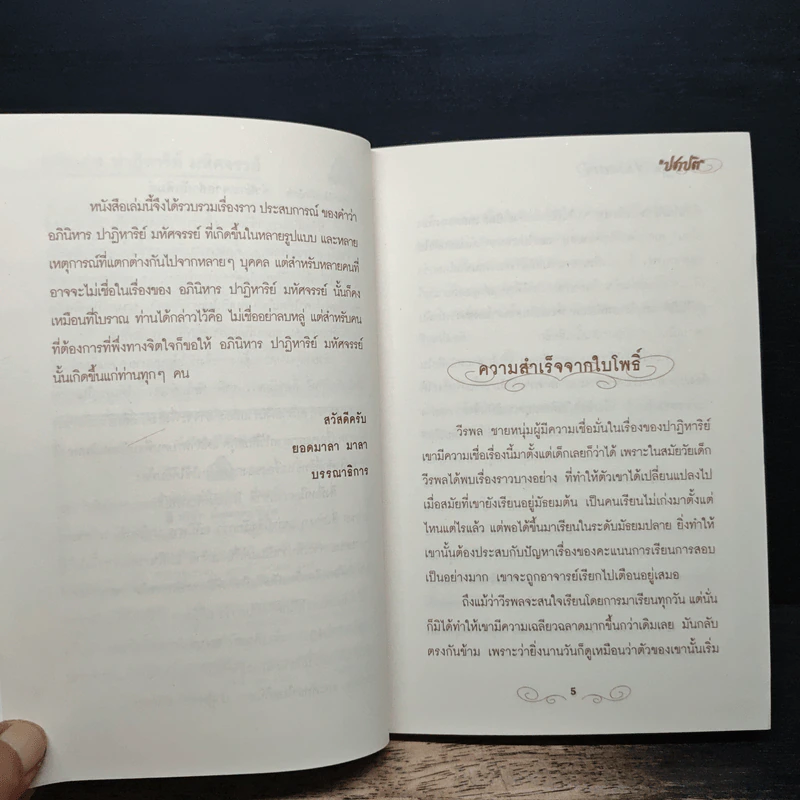 หนังสือเล่มนี้จึงได้รวบรวมเรื่องราว ประสบการณ์ ของคำว่า
อภินิหาร ปาฏิหาริย์ มหัศจรรย์ ที่เกิดขึ้นในหลายรูปแบบ และหลาย
เหตุการณ์ที่แตกต่างกันไปจากหลายๆ บุคคล แต่สำหรับหลายคนที่
อาจจะไม่เชื่อในเรื่องของ อภินิหาร ปาฏิหาริย์ มหัศจรรย์ นั้นก็คง
เหมือนที่โบราณ ท่านได้กล่าวไว้คือ ไม่เชื่ออย่าลบหลู่ แต่สำหรับคน
ที่ต้องการที่พึ่งทางจิตใจก็ขอให้ อภินิหาร ปาฏิหาริย์ มหัศจรรย์
นั้นเกิดขึ้นแก่ท่านทุกๆ คน
สวัสดีครับ
ยอดมาลา มาลา
บรรณาธิการ
ความสำเร็จจากใบโพธิ์
วีรพล ชายหนุ่มผู้มีความเชื่อมั่นในเรื่องของปาฏิหาริย์
เขามีความเชื่อเรื่องนี้มาตั้งแต่เด็กเลยก็ว่าได้ เพราะในสมัยวัยเด็ก
วีรพลได้พบเรื่องราวบางอย่าง ที่ทำให้ตัวเขาได้เปลี่ยนแปลงไป
เมื่อสมัยที่เขายังเรียนอยู่มัธยมต้น เป็นคนเรียนไม่เก่งมาตั้งแต่
ไหนแต่ไรแล้ว แต่พอได้ขึ้นมาเรียนในระดับมัธยมปลาย ยิ่งทำให้
เขานั้นต้องประสบกับปัญหาเรื่องของคะแนนการเรียนการสอบ
เป็นอย่างมาก เขาจะถูกอาจารย์เรียกไปเตือนอยู่เสมอ
ถึงแม้ว่าวีรพลจะสนใจเรียนโดยการมาเรียนทุกวัน แต่นั่น
ก็มิได้ทำให้เขามีความเฉลียวฉลาดมากขึ้นกว่าเดิมเลย มันกลับ
ตรงกันข้าม เพราะว่ายิ่งนานวันก็ดูเหมือนว่าตัวของเขานั้นเริ่ม
5